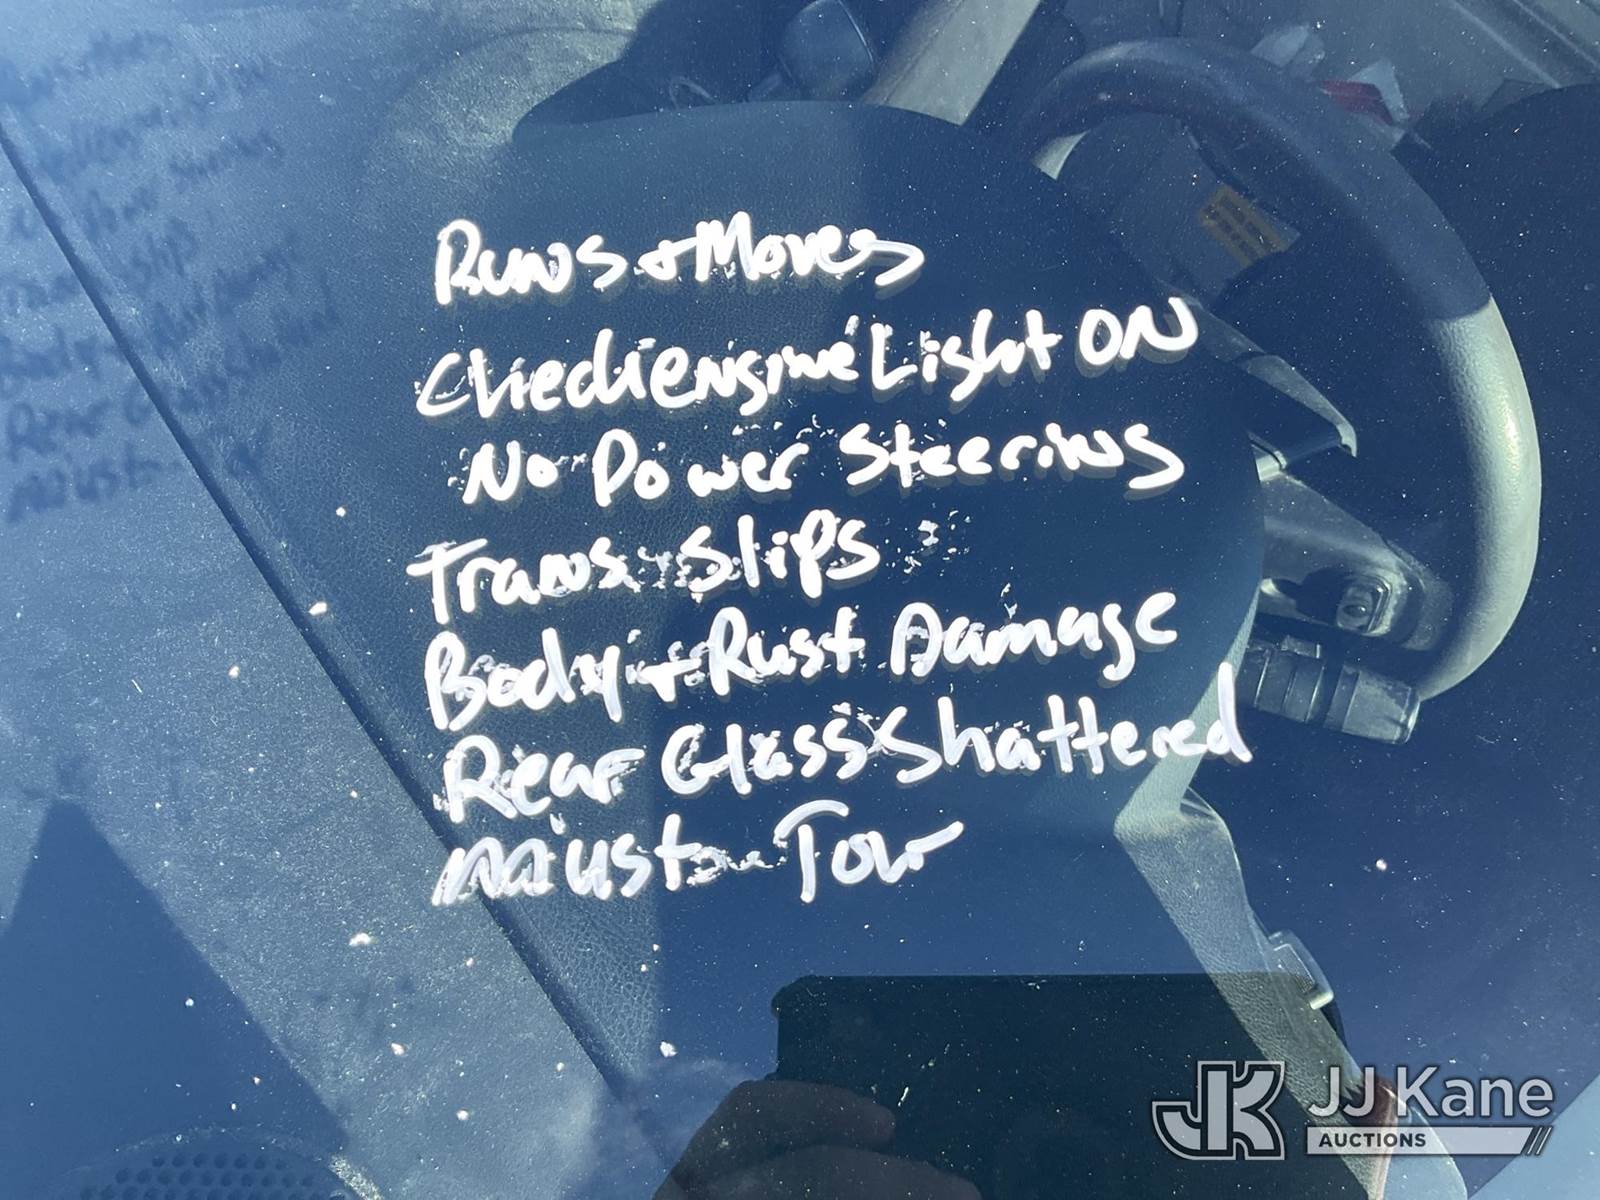 Runs + Moves
Check engine Light ON
No Power Steering
Trans Slips
Body + Rust Damage
Rear Glass Shattered
Must Tow
JK JJ Kane
AUCTIONS